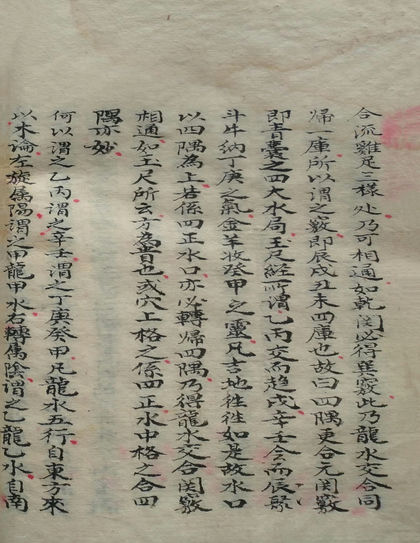 合流雞足三樣處乃可相通如乾関必得巽竅此乃龍水交合同
歸一庫所以謂之竅即辰戌丑未四庫也故曰四隅更合元関竅
即青囊之四大水局玉尺經所謂乙丙交而趋戌辛壬会而辰聚
斗牛納丁庚之氣金羊妆癸甲之靈凡吉地徃徃如是故水口
以四隅為上若係四正水口亦必轉歸四隅乃得龍水交合関竅
相通如玉尺所云方為貴也或穴上格之係四正水中格之合四
隅亦妙
何以謂之乙丙謂之辛壬謂之丁庚癸甲凡龍水五行自東方來
以木論左旋属陽謂之甲龍甲水右轉属陰謂之乙龍乙水自南